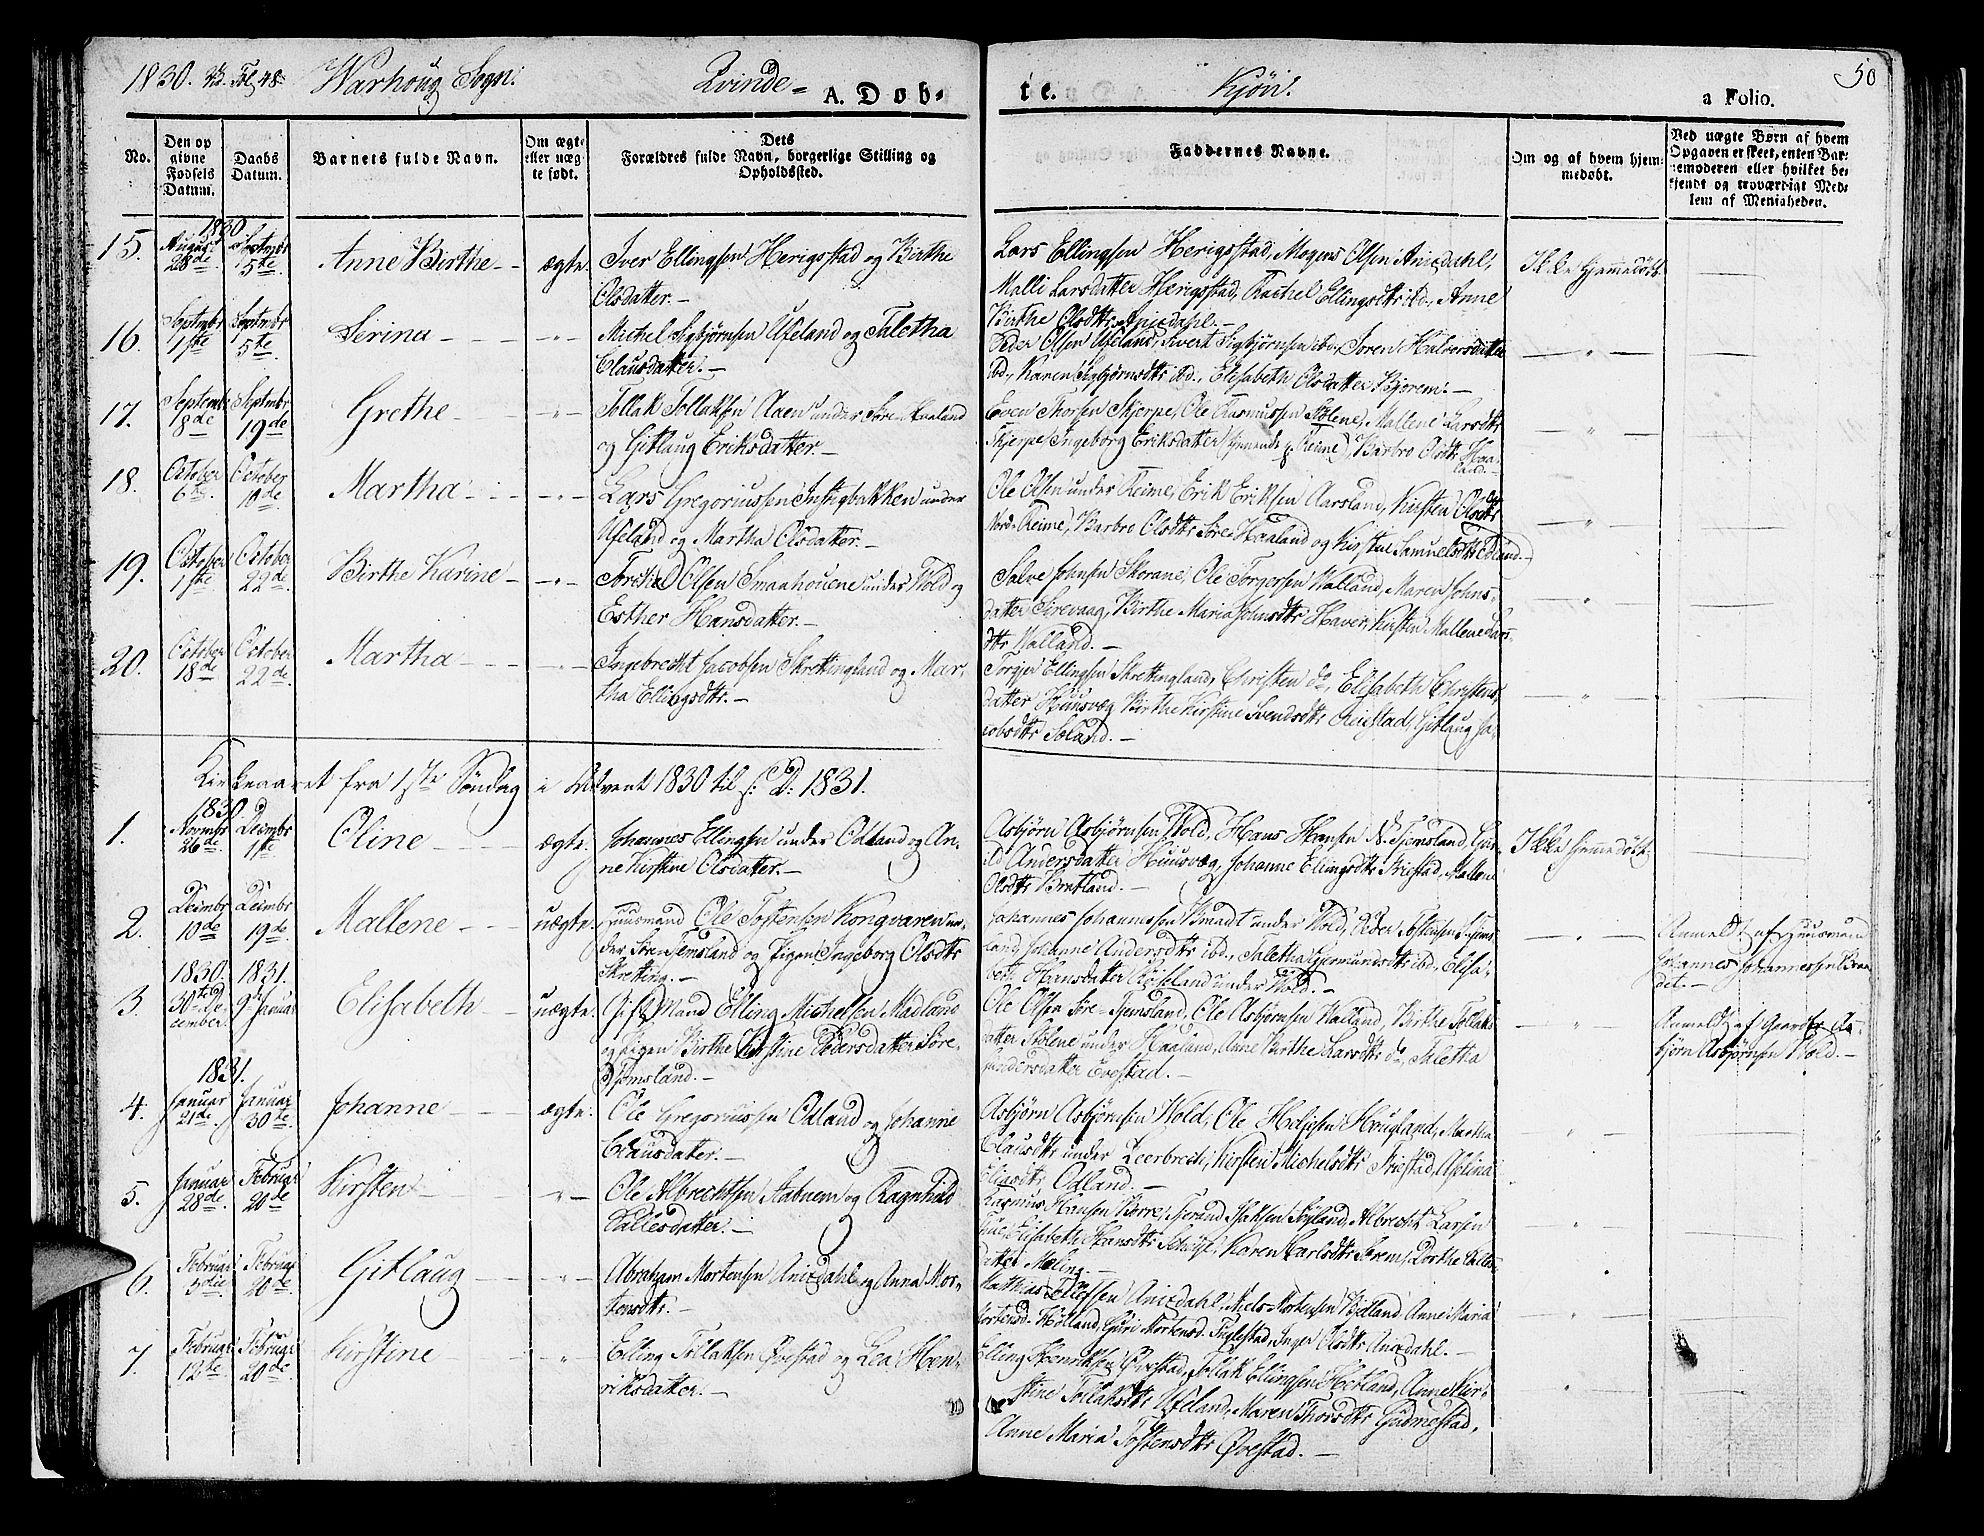 1830. Vid. Fol. 48. Warhoug Sogn. Qvinde- A. Døb- te. Kjøn. a Folio. 50
No.
Den op
givne
Fødsels
Datum.
Daabs
Datum.
Barnets fulde Navn.
Om ægte
eller uæg-
te født.
Dets
Forældres fulde Navn, borgerlige Stilling og
Opholdssted.
Faddernes Navne.
Om og af hvem hjem-
medøbt.
Ved uægte Børn af hvem
Opgaven er skeet, enten Bar-
nemoderen eller hvilket be-
kjendt og troværdigt Med-
lem af Menigheden.
15. 1830 August 28de Septmbr 5te Anne Birthe ægte. Iver Ellingsen Herigstad og Birthe
Olsdatter.
Lars Ellingsen Herigstad, Mogens Olsen Anisdahl,
Malli Larsdatter Herigstad, Rachel Ellingsdtr ibd., Anne
Birthe Olsdtr Anisdahl.
Ikke hjemmedøbt
16. Septmbr 1ste Septmbr 5te Serina - " - Michel Sigbjørnsen Ueland og Taletha
Clausdatter.
Peder Olsen Ueland, Sivert Sigbjørnsen ibd., Soren Halvorsdatter
ibd., Karen Sigbjørnsdtr ibd., Elisabeth Olsdatter Bjorem. - " -
17. Septembr 18de Septmbr 19de Grethe - " - Tollak Tollaksen Aaen under Søre Haaland
og Gitlaug Eriksdatter.
Even Thorsen Skjerpe, Ole Rasmussen Stølene, Mallene Larsdtr
Skjerpe, Ingeborg Eriksdatter tjenende p. Reime, Barbro Olsdtr Haa-
land. - " -
18. October 6te October 10de Martha - " - Lars Gregoriussen under
Ueland og Martha Olsdatter.
Ole Olsen under Reime, Erik Eriksen Aarsland, Kirsten Olsdtr
Nord-Reime, Barbro Olsdtr Søre Haaland og Kirstine Samuelsdtr Edland. - " -
19. October 1ste October 22de Birthe Karine - " - Torkel Olsen Smaahouene under Wold og
Esther Hansdatter.
Salve Johnsen Skorane, Ole Torgersen Walland, Maren Johns-
datter Sirevaag, Birthe Maria Johnsdtr Haver, Kirsten Mallene Lars-
dtr Walland. - " -
20. October 18de October 22de Martha - " - Ingebrecht Jacobsen Skrettingland og Mar-
tha Ellingsdtr.
Torger Ellingsen Skrettingland, Christen do, Elisabeth Christens-
datter Huusvæg, Birthe Kirstine Svendsdtr Reiestad, Gitlaug Ja-
cobsdtr Soland. - " -
Kirkeaaret fra 1ste Søndag i Advent 1830 til s: D: 1831.
1. 1830 Novmbr 26de Decmbr 1ste Oline ægte. Johannes Ellingsen under Odland og An-
ne Kirstine Olsdatter.
Asbjørn Asbjørnsen Wold, Hans Hansen N. Tjemsland, Gun-
ild Andersdatter Huusvæg, Johanne Ellingsdtr Friestad, Mallene
Olsdtr Bratland.
Ikke hjemmedøbt
2. Decmbr 10de Decmbr 19de Mallene uægte. Huusmand Ole Tostensen Kongvaren un-
der Søre Tjemsland og Pigen Ingeborg Olsdtr
Skretting.
Johannes Johannessen Brandt under Wold, Peder Tostensen Tjems-
land, Johanne Andersdtr ibd., Taletha Gjermundsdtr ibd., Elisa-
beth Hansdatter under Wold. - " -
Anmeldt af Huusmand
Johannes Johannessen Bran-
det.
3. 1830. 30te December 1831. 9de Januar Elisabeth uægte. Gift Mand Elling Michelsen Madland
og Pigen Birthe Kirstine Pedersdatter Søre-
Tjemsland.
Ole Olsen Søre-Tjemsland, Ole Asbjørnsen Walland, Birthe Tollaks-
datter Stølene under Haaland, Anne Birthe Larsdtr do, Taletha
Gundersdatter Evestad. - " -
Anmeldt af Gaardbr As-
bjørn Asbjørnsen Wold.
4. 1831. Januar 21de Januar 30te Johanne ægte. Ole Gregoriussen Odland og Johanne
Clausdatter.
Asbjørn Asbjørnsen Wold, Ole Helgesen Hougland, Martha
Clausdtr under Leerbrech, Kirsten Michelsdtr Friestad, Aselina
Eliasdtr Odland. "
5. Januar 28de Februar 20de Kirsten " - Ole Albrechtsen Aabuem og Ragnhild
Sallesdatter.
Rasmus Hansen Børre, Tjerand Isaksen Søyland, Albrecht Larsen
Elisabeth Hansdtr Karen Carlsdtr Dorthe Salles-
datter Mæling. "
6. Februar 5die Februar 20de Gitlaug - " - Abraham Mortensen Anisdahl og Anna Mor-
tensdtr.
Matthias Anisdahl, Niels Mortensen Bjelland, Anne Maria
Mortensd. Hølland, Guri Mortensd. Fuglestad, Inger Olsdtr Anisdahl. "
7. Februar 12te Februar 20de Kirstine " Elling Tollaksen Øvestad og Lea Hen-
riksdatter.
Elling Henriksen Øvestad, Tollak Ellingsen Hetland, Anne Kir-
stine Tollaksdtr Ueland, Maren Thorsdtr Gudmestad,
Anne Maria Tostensdtr Øvestad. "